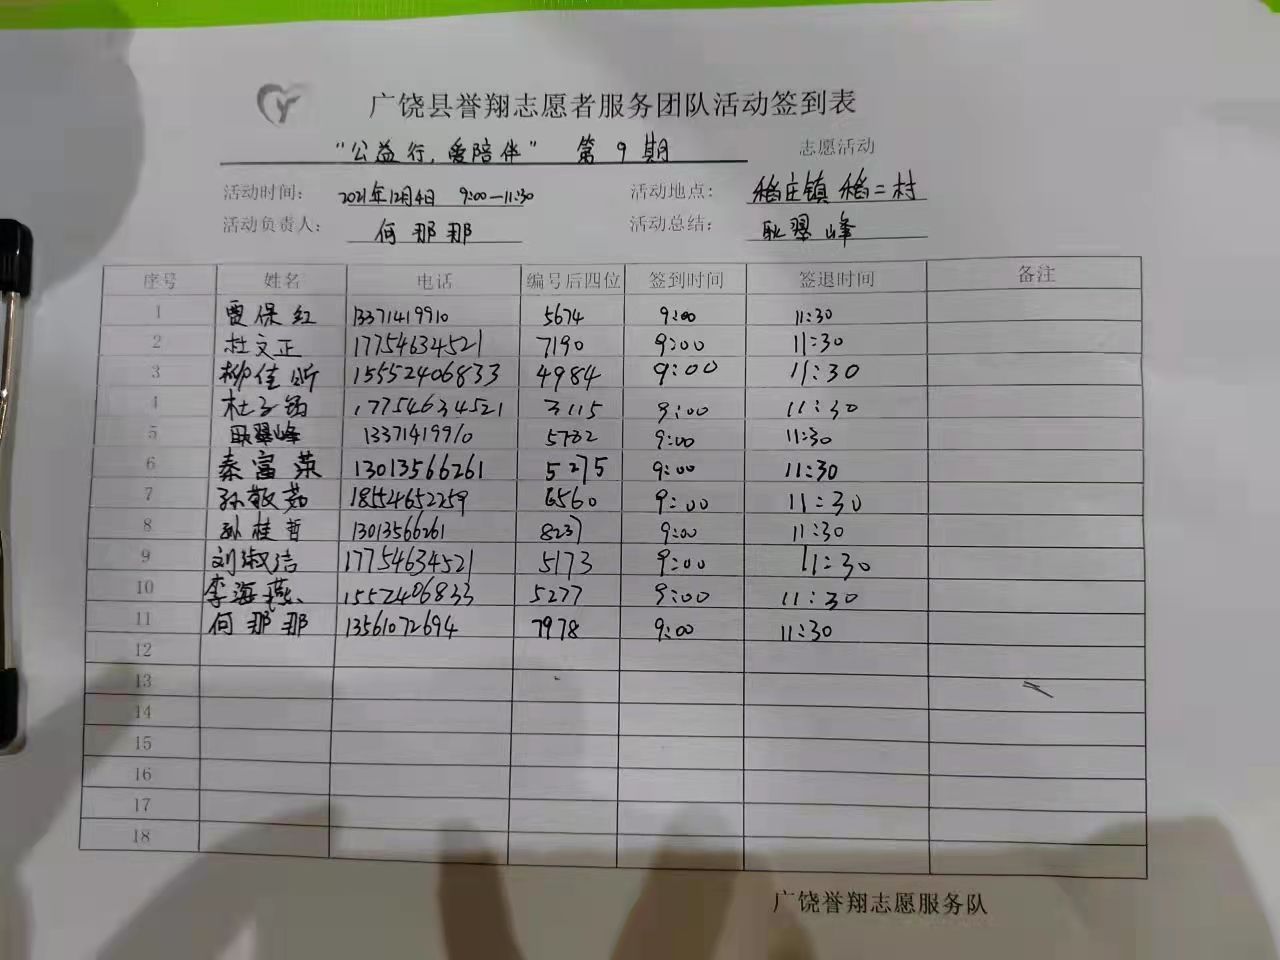 广饶县誉翔志愿者服务团队活动签到表
"公益行,爱陪伴" 第9期 志愿活动
活动时间: 2021年12月4日 9:00—11:30 活动地点: 稻庄镇稻二村
活动负责人: 何那那 活动总结: 耿翠峰
序号 姓名 电话 编号后四位 签到时间 签退时间 备注
1 贾保红 13371419910 5674 9:00 11:30
2 杜文正 17754634521 7190 9:00 11:30
3 柳佳昕 15552406833 4984 9:00 11:30
4 杜子 17754634521 3115 9:00 11:30
5 耿翠峰 13371419910 5782 9:00 11:30
6 秦富荣 13013566261 5275 9:00 11:30
7 孙敬茹 18554652259 6560 9:00 11:30
8 孙桂哲 13013566261 8237 9:00 11:30
9 刘淑洁 17754634521 5173 9:00 11:30
10 李海燕 15552406833 5277 9:00 11:30
11 何那那 13561072694 7978 9:00 11:30
12
13
14
15
16
17
18
广饶誉翔志愿服务队